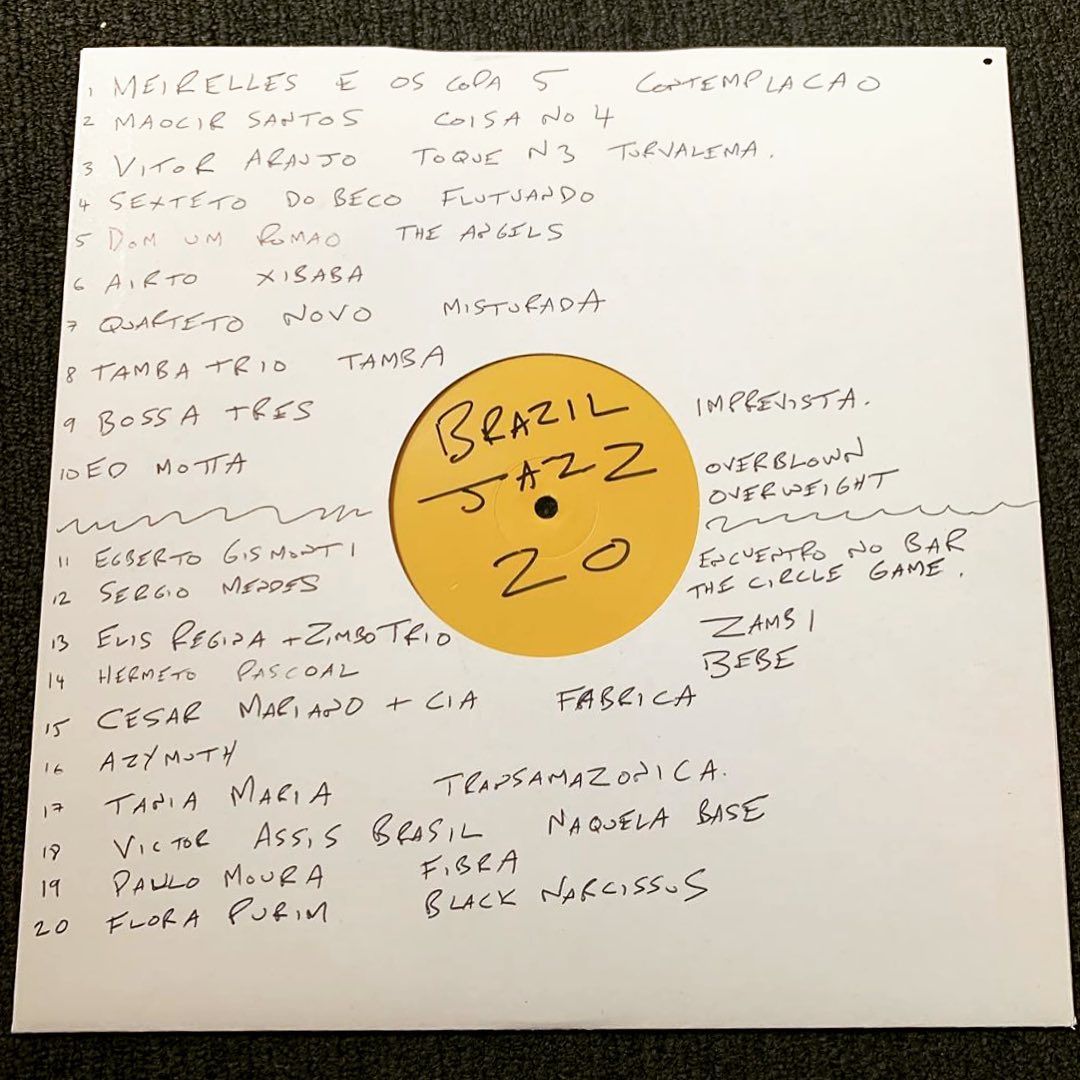 1 MEIRELLES E OS COPA 5 CONTEMPLACAO
2 MAOCIR SANTOS COISA NO 4
3 VITOR ARAUJO TOQUE N3 TURVALEMA.
4 SEXTETO DO BECO FLUTUANDO
5 DOM UM ROMAO THE ANGELS
6 AIRTO XIBABA
7 QUARTETO NOVO MISTURADA
8 TAMBA TRIO TAMBA
9 BOSSA TRES IMPREVISTA.
10 ED MOTTA OVERBLOWN
OVERWEIGHT
BRAZIL
JAZZ
20
11 EGBERTO GISMONTI ENCUENTRO NO BAR
12 SERGIO MENDES THE CIRCLE GAME.
13 ELIS REGINA + ZIMBO TRIO ZAMBI
14 HERMETO PASCOAL BEBE
15 CESAR MARIANO + CIA FABRICA
16 AZYMUTH
17 TANIA MARIA TRANSAMAZONICA.
18 VICTOR ASSIS BRASIL NAQUELA BASE
19 PAULO MOURA FIBRA
20 FLORA PURIM BLACK NARCISSUS